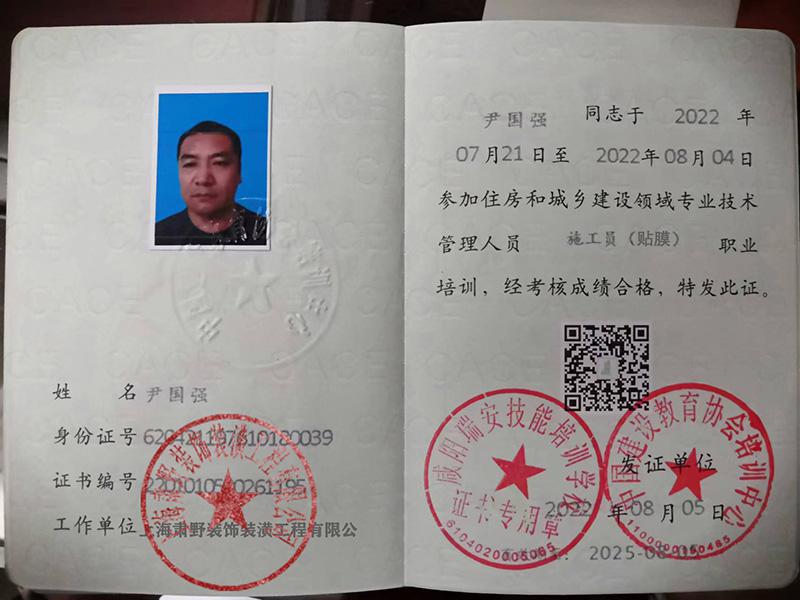 姓 名 尹国强
身份证号
证书编号
工作单位 上海肃野装饰装潢工程有限公
尹国强 同志于 2022 年
07月21日至 2022年08月04日
参加住房和城乡建设领域专业技术
管理人员 施工员（贴膜） 职业
培训，经考核成绩合格，特发此证。
咸阳瑞安技能培训学校
证书专用章
6104020005065
中国建设教育协会培训中心
发证单位
2022 年 08 月 05 日